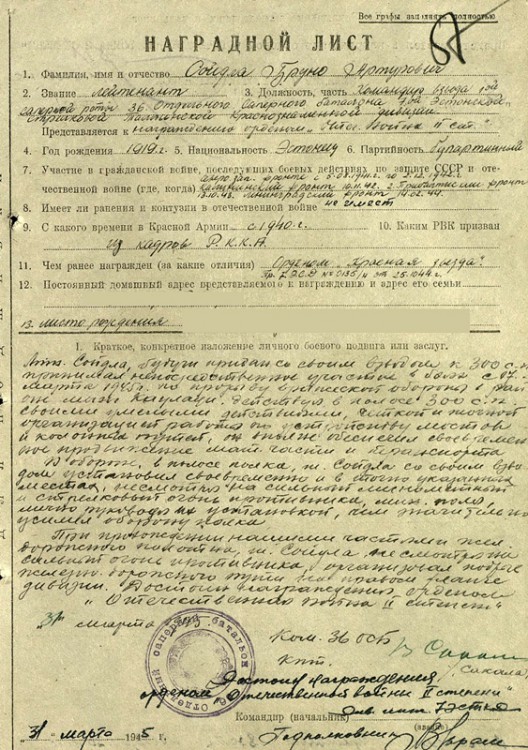 Все графы заполнять полностью
87
НАГРАДНОЙ ЛИСТ
1. Фамилия, имя и отчество Сойдла Бруно Артурович
2. Звание лейтенант 3. Должность, часть Командир взвода 1-ой
саперной роты 36 Отдельного Саперного батальона 7-ой Эстонской
Стрелковой Таллинской Краснознаменной дивизии
Представляется к награждению орденом „Отеч. Войны II ст."
4. Год рождения 1919 г. 5. Национальность Эстонец 6. Партийность Беспартийный
7. Участие в гражданской войне, последующих боевых действиях по защите СССР и оте-
чественной войне (где, когда) Калининский фронт 2 Прибалтийский фронт
Ленинградский фронт
8. Имеет ли ранения и контузии в отечественной войне не имеет
9. С какого времени в Красной Армии с 1940 г. 10. Каким РВК призван
из кадров Р.К.К.А.
11. Чем ранее награжден (за какие отличия) Орденом „Красная Звезда"
12. Постоянный домашний адрес представляемого к награждению и адрес его семьи
13. место рождения
I. Краткое, конкретное изложение личного боевого подвига или заслуг.
Лтн. Сойдла, будучи придан со своим взводом к 300 с.п.
принимал непосредственное участие в боях с 17
марта 1945 г. по прорыву вражеской обороны в рай-
оне Действуя в полосе 300 с.п.
своими умелыми действиями, четкой и точной
организацией работ по устройству мостов
и колонных путей, он вполне обеспечил своевремен-
ное продвижение мат. части и транспорта
В обороне, в полосе полка, т. Сойдла со своим взво-
дом установил своевременно и в точно указанных
местах, несмотря на сильный минометный
и стрелковый огонь противника, мин. поля,
лично руководя их установкой, чем значительно
усилил оборону полка
При прохождении нашими частями жел.
дорожного полотна, т. Сойдла, несмотря на
сильный огонь противника, организовал подрыв
железно-дорожного пути на правом фланге
дивизии. Достоин награждения орденом
„Отечественная война II степени"
31 марта
Ком. 36 ОСБ
кпт. /Сакала/
Достоин награждения
орденом „Отечественной войны II степени"
Командир (начальник)
Подполковник
31 марта 1945 г.